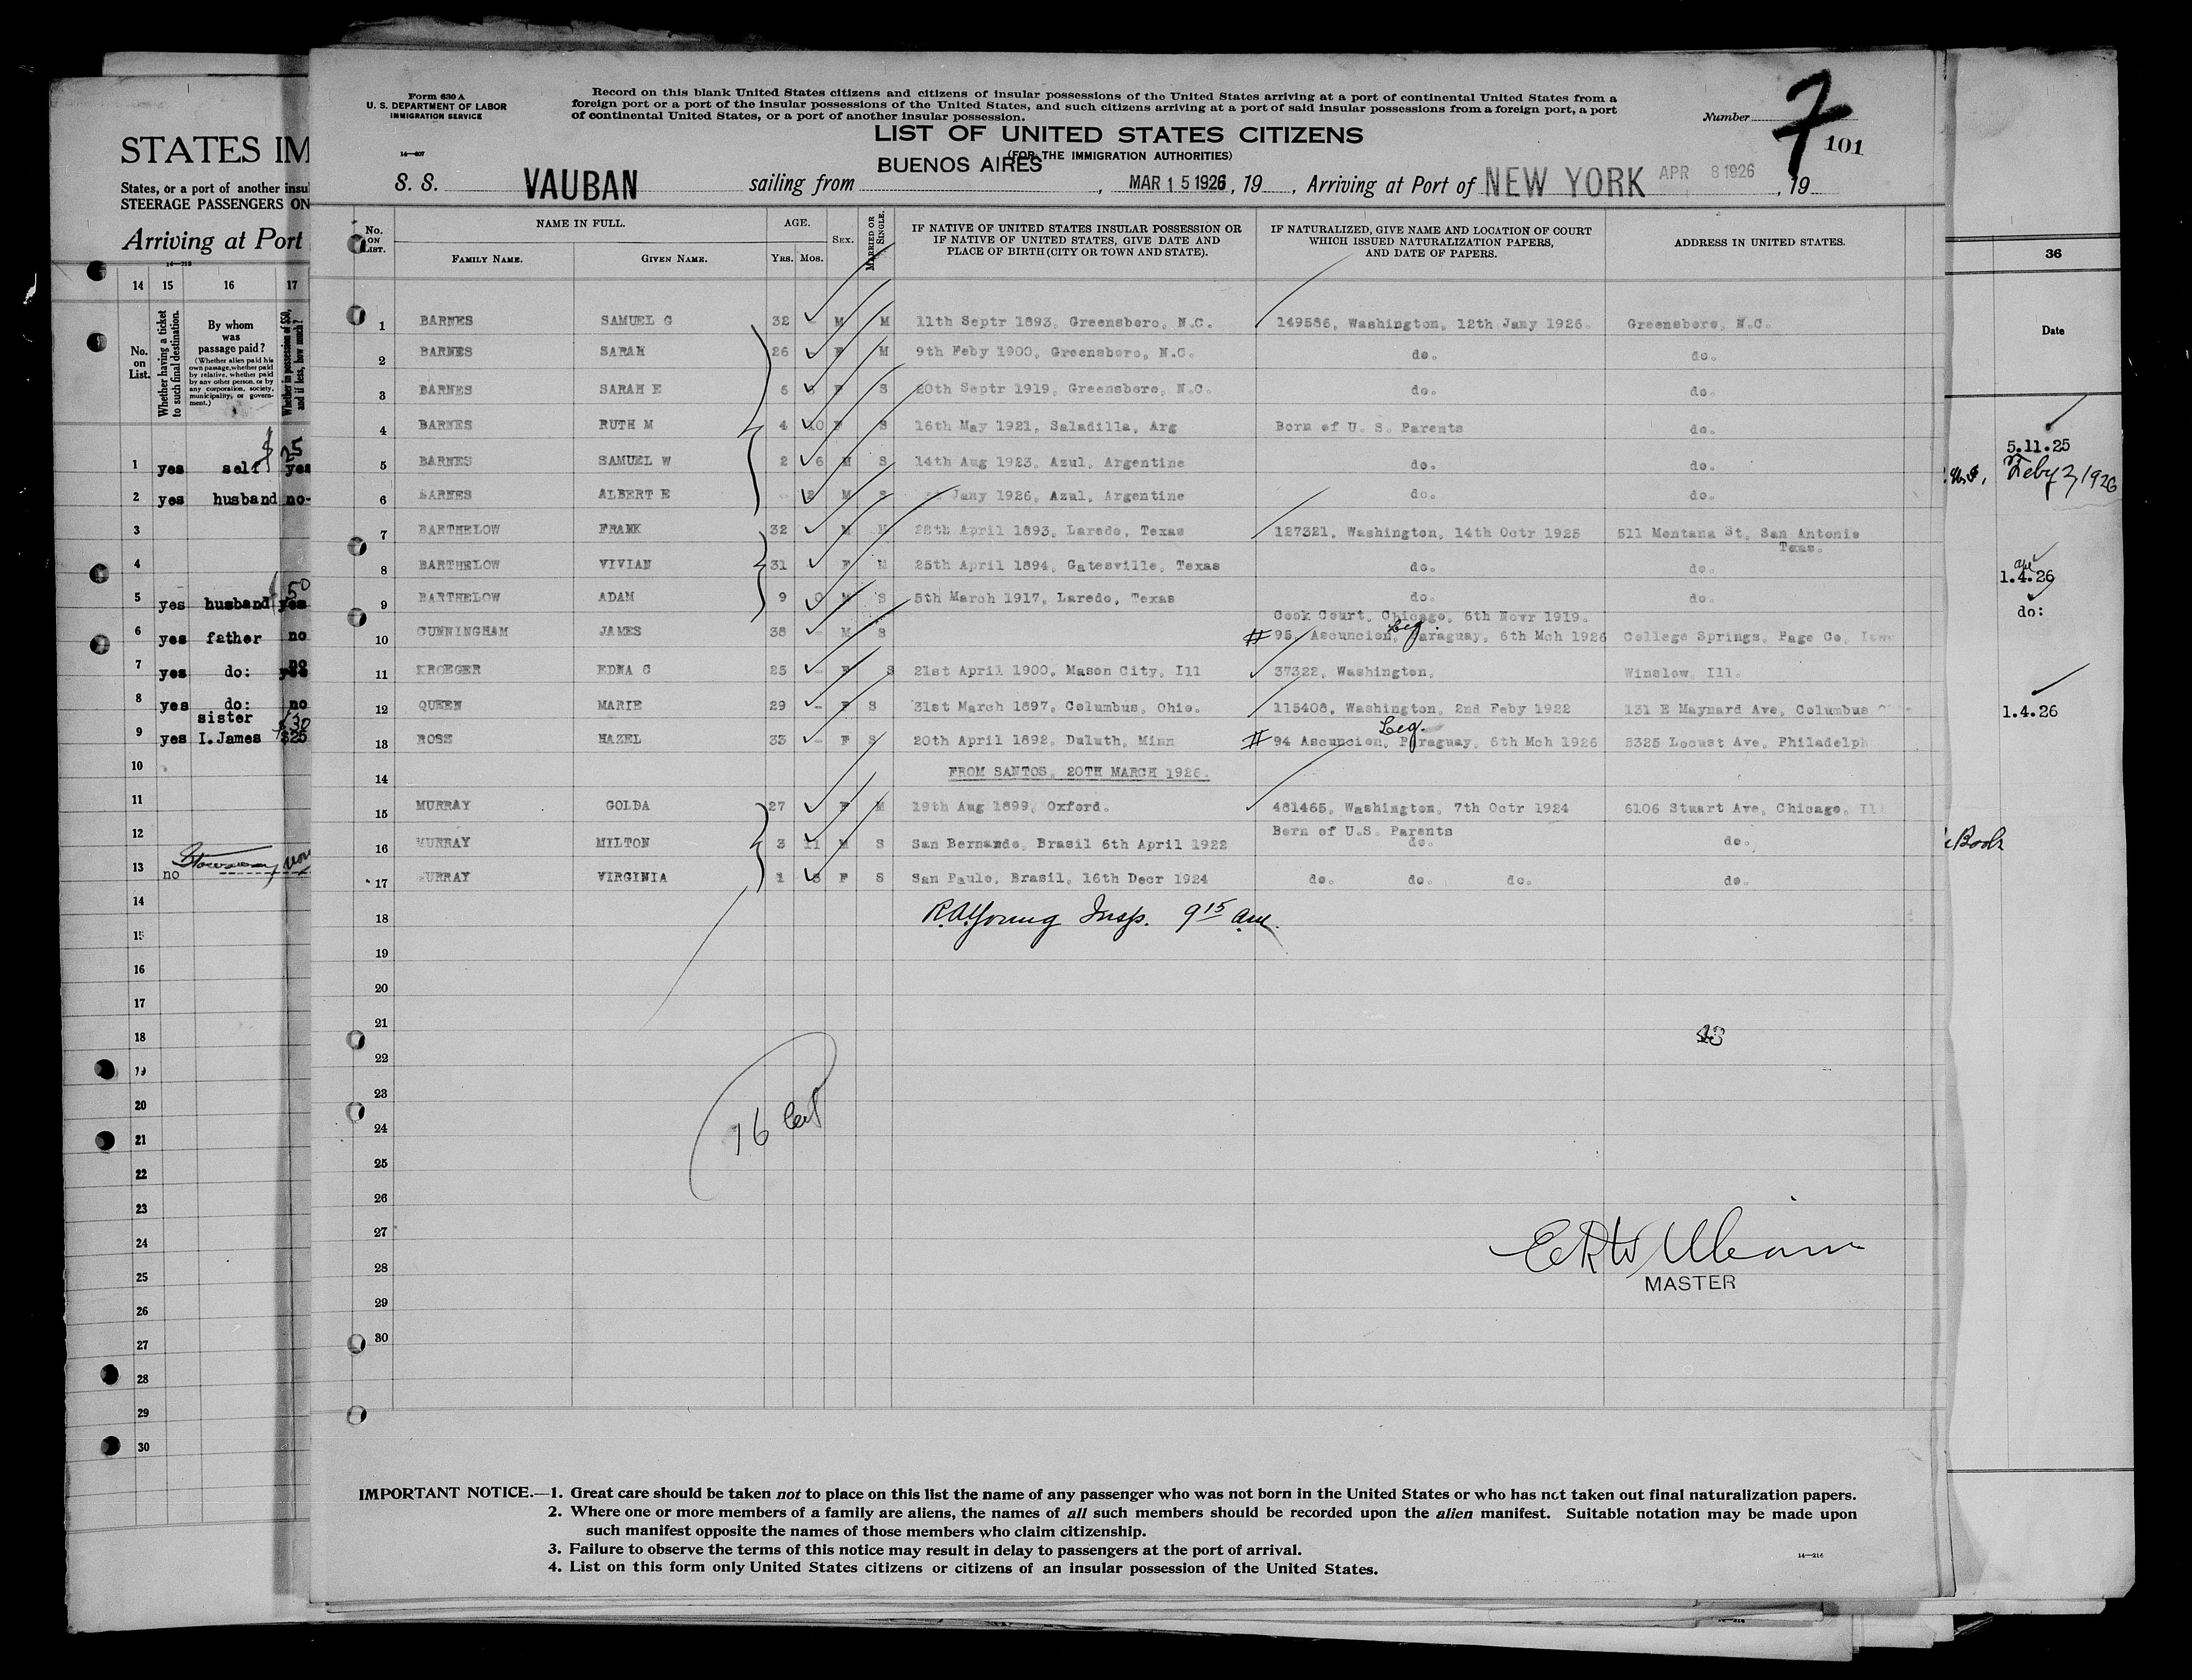 Form 630 A
U. S. DEPARTMENT OF LABOR
IMMIGRATION SERVICE
Record on this blank United States citizens and citizens of insular possessions of the United States arriving at a port of continental United States from a
foreign port or a port of the insular possessions of the United States, and such citizens arriving at a port of said insular possessions from a foreign port, a port
of continental United States, or a port of another insular possession.
Number 7 101
LIST OF UNITED STATES CITIZENS
(FOR THE IMMIGRATION AUTHORITIES)
14—607
S. S. VAUBAN sailing from BUENOS AIRES, MAR 15 1926, 19 , Arriving at Port of NEW YORK APR 8 1926, 19
No. ON LIST. NAME IN FULL. AGE. SEX. MARRIED OR SINGLE. IF NATIVE OF UNITED STATES INSULAR POSSESSION OR IF NATIVE OF UNITED STATES, GIVE DATE AND PLACE OF BIRTH (CITY OR TOWN AND STATE). IF NATURALIZED, GIVE NAME AND LOCATION OF COURT WHICH ISSUED NATURALIZATION PAPERS, AND DATE OF PAPERS. ADDRESS IN UNITED STATES.
FAMILY NAME. GIVEN NAME. YRS. MOS.
1 BARNES SAMUEL G 32 - M M 11th Septr 1893, Greensboro, N.C. 149586, Washington, 12th Jany 1926. Greensboro, N.C.
2 BARNES SARAH 26 F M 9th Feby 1900, Greensboro, N.C. do. do.
3 BARNES SARAH E 6 F S 20th Septr 1919, Greensboro, N.C. do. do.
4 BARNES RUTH M 4 10 F S 16th May 1921, Saladilla, Arg Born of U. S. Parents do.
5 BARNES SAMUEL W 2 6 M S 14th Aug 1923, Azul, Argentine do. do.
6 BARNES ALBERT E - 2 M S Jany 1926, Azul, Argentine do. do.
7 BARTHELOW FRANK 32 M M 28th April 1893, Laredo, Texas 127321, Washington, 14th Octr 1925 511 Montana St, San Antonio
Texas.
8 BARTHELOW VIVIAN 31 F M 25th April 1894, Gatesville, Texas do. do.
9 BARTHELOW ADAM 9 0 M S 5th March 1917, Laredo, Texas do. do.
Cook Court, Chicago, 6th Novr 1919.
10 CUNNINGHAM JAMES 38 - M S # 95, Ascuncion, Leg Paraguay, 6th Mch 1926 College Springs, Page Co, Iowa
11 KROEGER EDNA C 25 - F S 21st April 1900, Mason City, Ill 37322, Washington. Winslow, Ill.
12 QUEEN MARIE 29 - F S 31st March 1897, Columbus, Ohio. 115408, Washington, 2nd Feby 1922 131 E Maynard Ave, Columbus
Leg.
13 ROSS HAZEL 33 - F S 20th April 1892, Duluth, Minn # 94 Ascuncion, Paraguay, 6th Mch 1926 5325 Locust Ave, Philadelph
14 FROM SANTOS, 20TH MARCH 1926.
15 MURRAY GOLDA 27 F M 19th Aug 1899, Oxford. 481465, Washington, 7th Octr 1924 6106 Stuart Ave, Chicago, Ill
Born of U.S. Parents
16 MURRAY MILTON 3 11 M S San Bernando, Brasil 6th April 1922 do. do.
17 MURRAY VIRGINIA 1 3 F S San Paulo, Brasil, 16th Decr 1924 do. do. do. do.
18 R.A. Young Insp. 9 15 am.
19
20
21
22
23
24
25
26
27
28
29
30
16
MASTER
IMPORTANT NOTICE.—1. Great care should be taken not to place on this list the name of any passenger who was not born in the United States or who has not taken out final naturalization papers.
2. Where one or more members of a family are aliens, the names of all such members should be recorded upon the alien manifest. Suitable notation may be made upon
such manifest opposite the names of those members who claim citizenship.
3. Failure to observe the terms of this notice may result in delay to passengers at the port of arrival.
4. List on this form only United States citizens or citizens of an insular possession of the United States.
14—216
STATES IM
States, or a port of another insul
STEERAGE PASSENGERS ON
Arriving at Port
14 15 16 17
No. on List. Whether having a ticket to such final destination. By whom was passage paid? (Whether alien paid his own passage, whether paid by relative, whether paid by any other person, or by any corporation, society, municipality, or government.) Whether in possession of $50, and if less, how much?
1 yes self $ 25 yes
2 yes husband no
3
4
5 yes husband 50 yes
6 yes father no
7 yes do: no yes
8 yes do: no
sister $30
9 yes I.James $25
10
11
12
13 no
14
15
16
17
18
19
20
21
22
23
24
25
26
27
28
29
30
36
Date
5.11.25
Feby 2, 1926
1.4.26
do:
1.4.26
Book